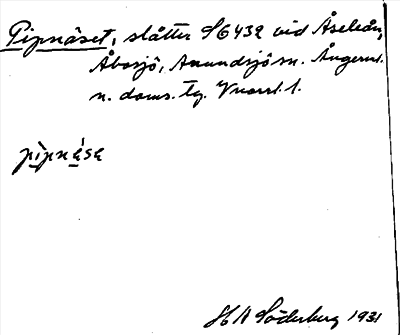 Pipnäset, slåtter S6432 vid Åseleån,
Åbosjö, Anundsjö sn. Ångerml.
n. doms. tg.
pipnẹsa
H A Söderberg 1931